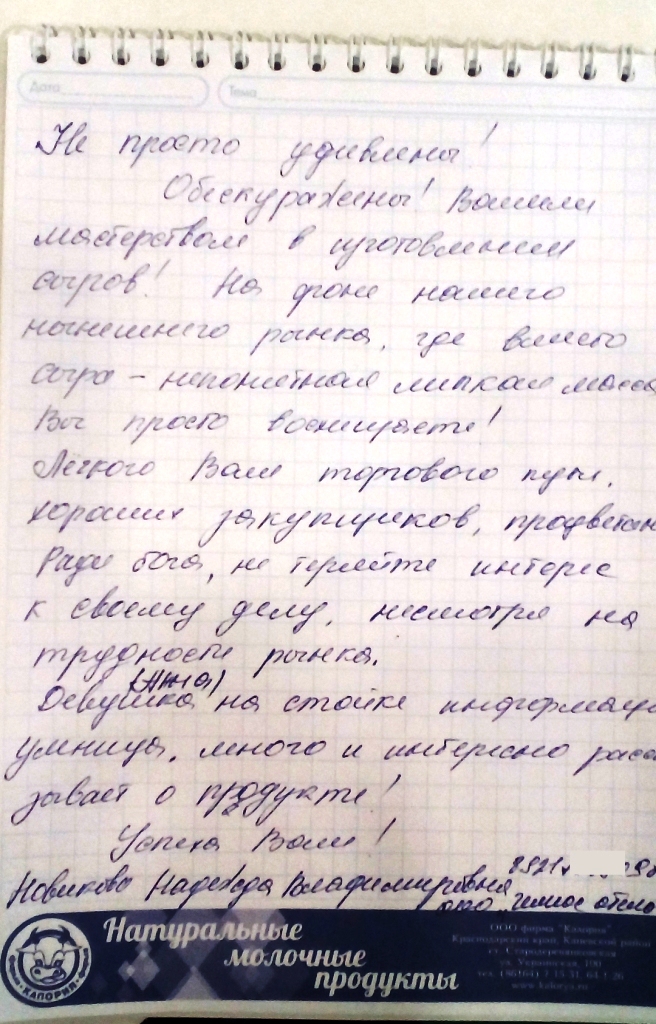 Дата
Тема
Не просто удивлены!
Обескуражены! Вашим
мастерством в изготовлении
сыров! На фоне нашего
нынешнего рынка, где вместо
сыра – непонятная липкая масса
Вы просто восхищаете!
Лёгкого Вам торгового пути,
хороших закупщиков, процветан
Ради бога, не теряйте интерес
к своему делу, несмотря на
трудности рынка.
(Яна)
Девушка на стойке информаци
умница, много и интересно расс
зывает о продукте!
Успеха Вам!
Новикова Надежда Владимировна
8921
ООО
Натуральные
молочные
продукты
КАЛОРИЯ
ООО фирма "Калория"
Краснодарский край, Каневской район
ст. Стародеревянковская
ул. Украинская, 100